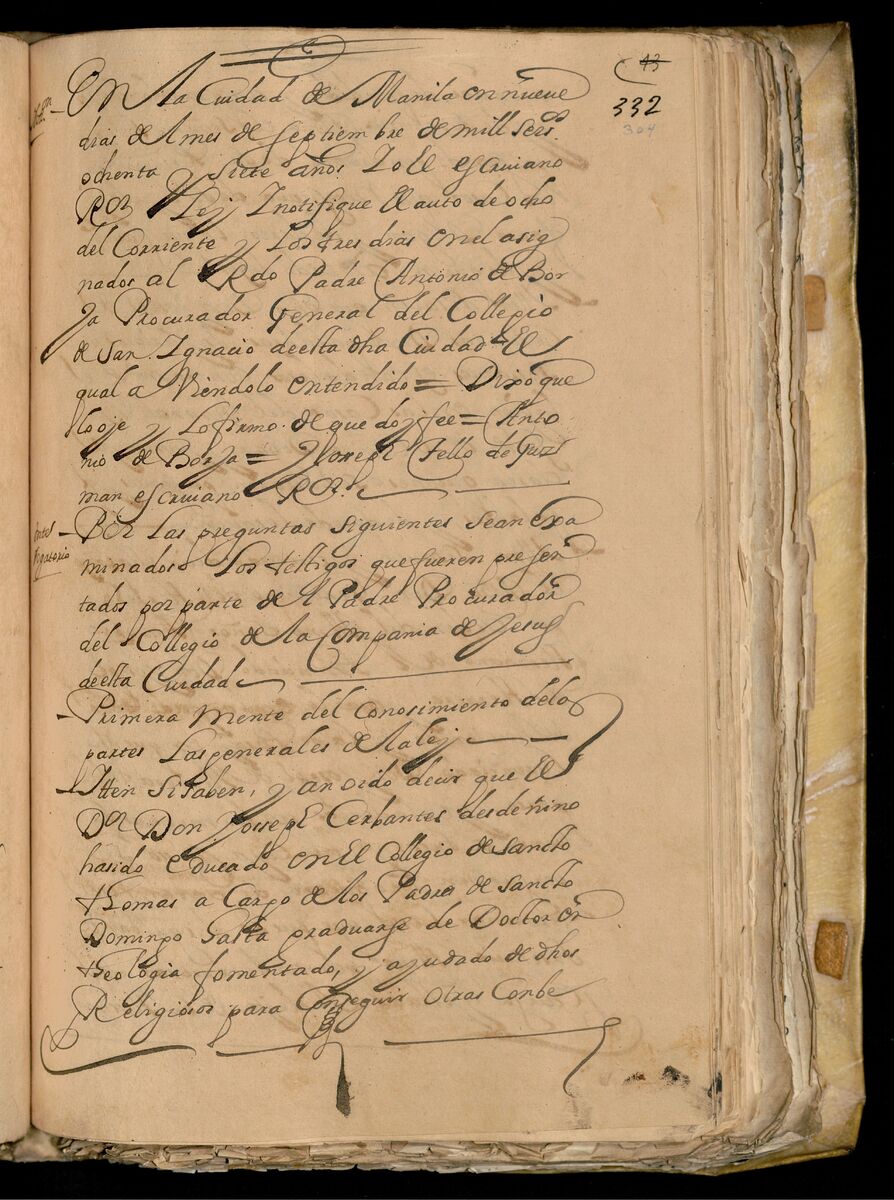 43
332
304
En la Cuidad de Manila en nueve
dias de l mes de Septiembre de mill seisos.
ochenta y siete años. Io El escruiano
Ror Lej Inotifique El auto de ocho
del Corriente y Los tres dias en el asig
nados al Rdo Padre Antonio de Bor
ja Procurador General del Collegio
de San. Ignacio de esta dha Cuidad El
qual a Viendolo entendido = Dixo que
lo oje y Lo firmo. de que doy fee = Anto
nio de Borja = Josseph Tello de Guz
man escruiano Ror.
Interrogatorio
Por Las preguntas siguientes sean exa
minados Los testigos que fueren presen
tados por parte de l Padre Procurador
del Collegio de la Compania de Jesus
de esta Cuidad
Primera mente del Conosimiento de la
partes Las generales de la lej
Itten Si saben, y an oido decir que El
Dor Don Josseph Cerbantes desde nino
ha sido educado en El Collegio de sancto
thomas a Cargo de los Padres de sancto
Domingo hasta graduarse de Doctor en
theologia fomentado, y ajudado de dhos
Religiosos para Conseguir otras Conbe